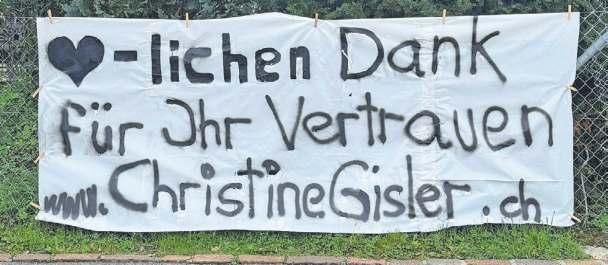 ♥-lichen Dank
für Ihr Vertrauen
www.ChristineGisler.ch